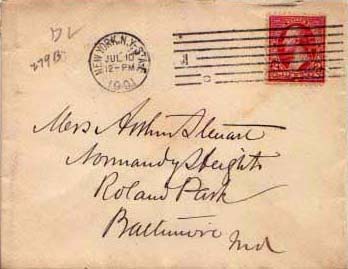 279B.
NEW YORK, N.Y. STA.
JUL 10
12-PM
1901
Mrs Arthur Stewart
Normandy Heights
Roland Park
Baltimore Md